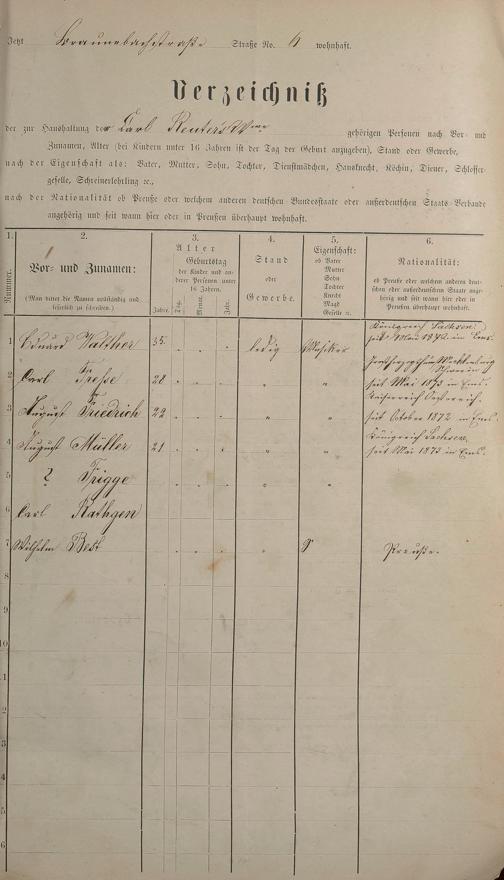 Jetzt Braunebachstraße Straße No. 6 wohnhaft.
Verzeichniß
der zur Haushaltung der Carl Reuter's Wwe gehörigen Personen nach Vor- und
Zunamen, Alter (bei Kindern unter 16 Jahren ist der Tag der Geburt anzugeben), Stand oder Gewerbe,
nach der Eigenschaft als: Vater, Mutter, Sohn, Tochter, Dienstmädchen, Hausknecht, Köchin, Diener, Schlosser-
geselle, Schreinerlehrling ꝛc.,
nach der Nationalität ob Preuße oder welchem anderen deutschen Bundesstaate oder außerdeutschen Staats-Verbande
angehörig und seit wann hier oder in Preußen überhaupt wohnhaft.
1. 2. 3. 4. 5. 6.
Nummer.
Vor- und Zunamen:
(Man bittet die Namen vollständig und leserlich zu schreiben.)
Alter
Geburtstag
der Kinder und an-
derer Personen unter
16 Jahren.
Jahre. Tag. Monat. Jahr.
Stand
oder
Gewerbe.
Eigenschaft:
ob Vater
Mutter
Sohn
Tochter
Knecht
Magd
Geselle ꝛc.
Nationalität:
ob Preuße oder welchem anderen deut-
schen oder außerdeutschen Staate ange-
hörig und seit wann hier oder in
Preußen überhaupt wohnhaft.
Königreich Sachsen
1 Eduard Walther 35. ledig Musiker seit Mai 1872 in Ems.
Großherzogthum Mecklenburg
Schwerin
2 Carl Frehse 28 " " seit Mai 1873 in Ems.
Kaiserreich Oestreich.
3 August Friedrich 22 " " seit October 1872 in Ems.
Königreich Sachsen
4 August Müller 21 " " seit Mai 1873 in Ems.
5 ? Frigge " "
6 Carl Rathgen
7 Wilhelm Best Preuße.
8
9
10
1
2
3
4
5
6